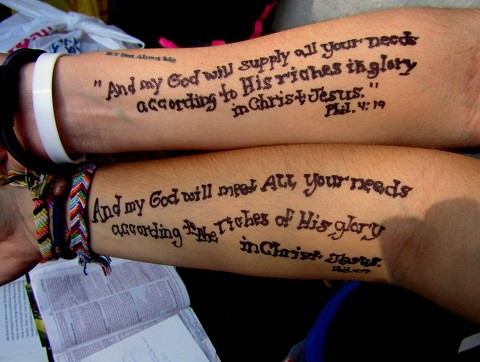 It's Not About Me
"And my God will supply all your needs
according to His riches in glory
in Christ Jesus."
Phil. 4:19
And my God will meet ALL your needs
according to the riches of His glory
in Christ Jesus.
Phil. 4:19